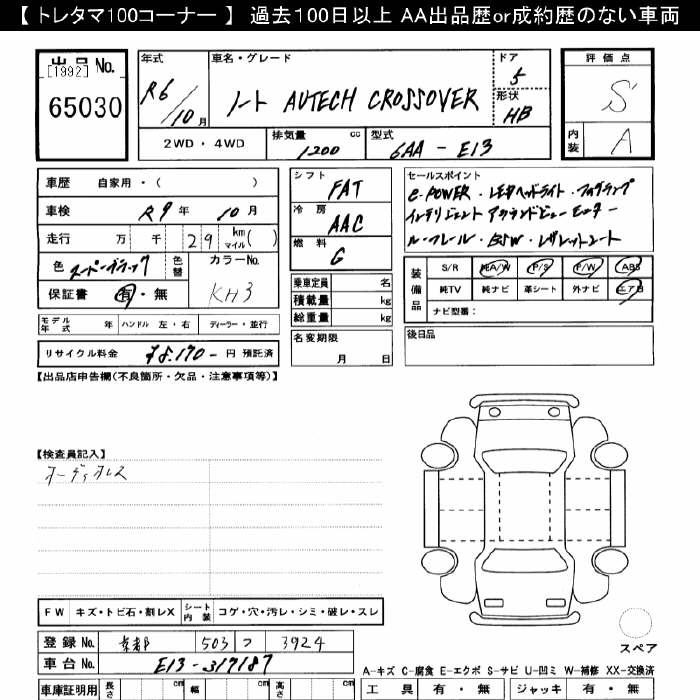 【 トレタマ100コーナー 】 過去100日以上 AA出品歴or成約歴のない車両
出品 No.
[1992]
65030
年式
R6/10月
車名・グレード
ノート AUTECH CROSSOVER
ドア
5
形状
HB
評価点
S
内装
A
2WD・4WD
排気量
1200 cc
型式
6AA - E13
車歴 自家用・( )
車検 R9年 10月
走行 万 千 29 kmマイル( )
色 スーパーブラック
色替
カラーNo.
KH3
保証書 有・無
モデル年式 年 ハンドル 左・右 ディーラー・並行
リサイクル料金 ¥8,170- 円 預託済
シフト
FAT
冷房
AAC
燃料
G
乗車定員 名
積載量 kg
総重量 kg
名変期限
月 日
セールスポイント
e-POWER・LEDヘッドライト・フォグランプ
インテリジェント アラウンドビューモニター
ルーフレール・BSW・レザレットシート
装備品
S/R 純A/W P/S P/W ABS
純TV 純ナビ 革シート 外ナビ エアB
ナビ型番:
後日品
【出品店申告欄(不良箇所・欠品・注意事項等)】
【検査員記入】
オーディオレス
FW キズ・トビ石・割レX シート内装 コゲ・穴・汚レ・シミ・破レ・スレ
登録 No. 京都 503 つ 3924
車台 No. E13-317187
車庫証明用 長さ cm 幅 cm 高さ cm
スペア
A-キズ C-腐食 E-エクボ S-サビ U-凹ミ W-補修 XX-交換済
工具 有・無 ジャッキ 有・無